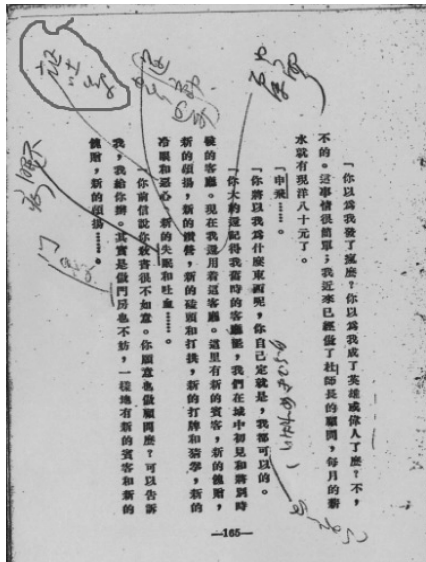 「你以爲我發了瘋麽?你以爲我成了英雄或偉人了麽?不,
不的。這事情很簡單;我近來已經做了杜師長的顧問,每月的薪
水就有現洋八十元了。
「申飛……。
「你將以我爲什麼東西呢,你自己定就是,我都可以的。
「你大約還記得我舊時的客廳罷,我們在城中初見和將別時
候的客廳。現在我還用着這客廳。這里有新的賓客,新的餽贈,
新的頌揚,新的鑽營,新的磕頭和打拱,新的打牌和猜拳,新的
冷眼和惡心,新的失眠和吐血……。
「你前信說你教書很不如意。你願意也做顧問麽?可以告訴
我,我給你辦。其實是做門房也不妨,一樣地有新的賓客和新的
餽贈,新的頌揚……。
—165—